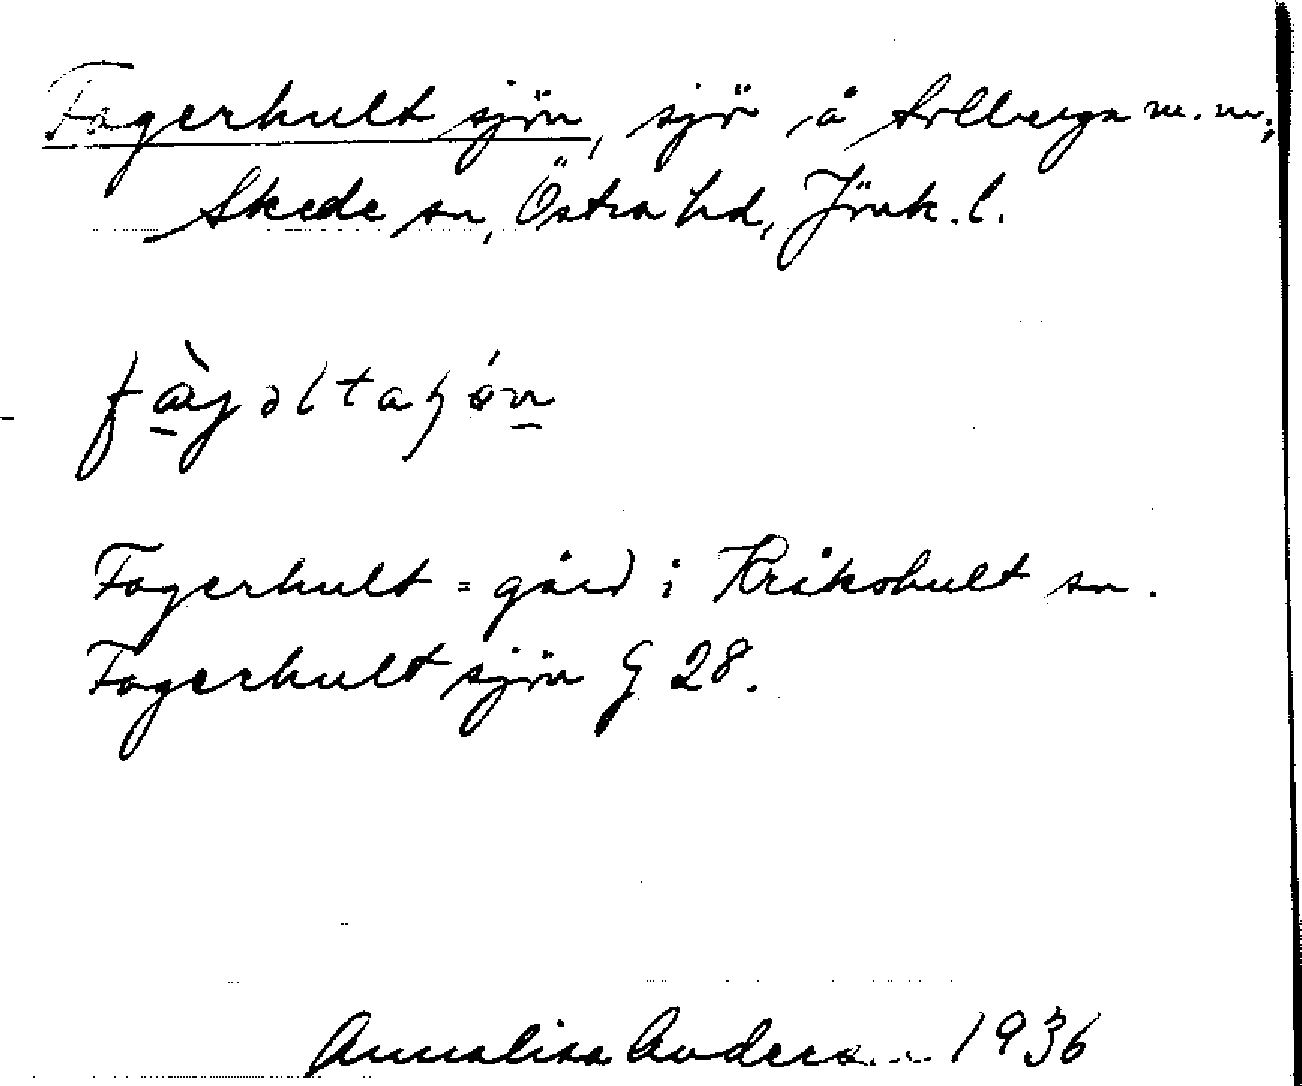 Fagerhult sjön, sjö å Solberga m.m.,
Skede sn, Östra hd, Jönk. l.
fàgəltaɧón
Fagerhult = gård i Kråkshult sn.
Fagerhult sjön G 28.
Annalisa Anders... 1936